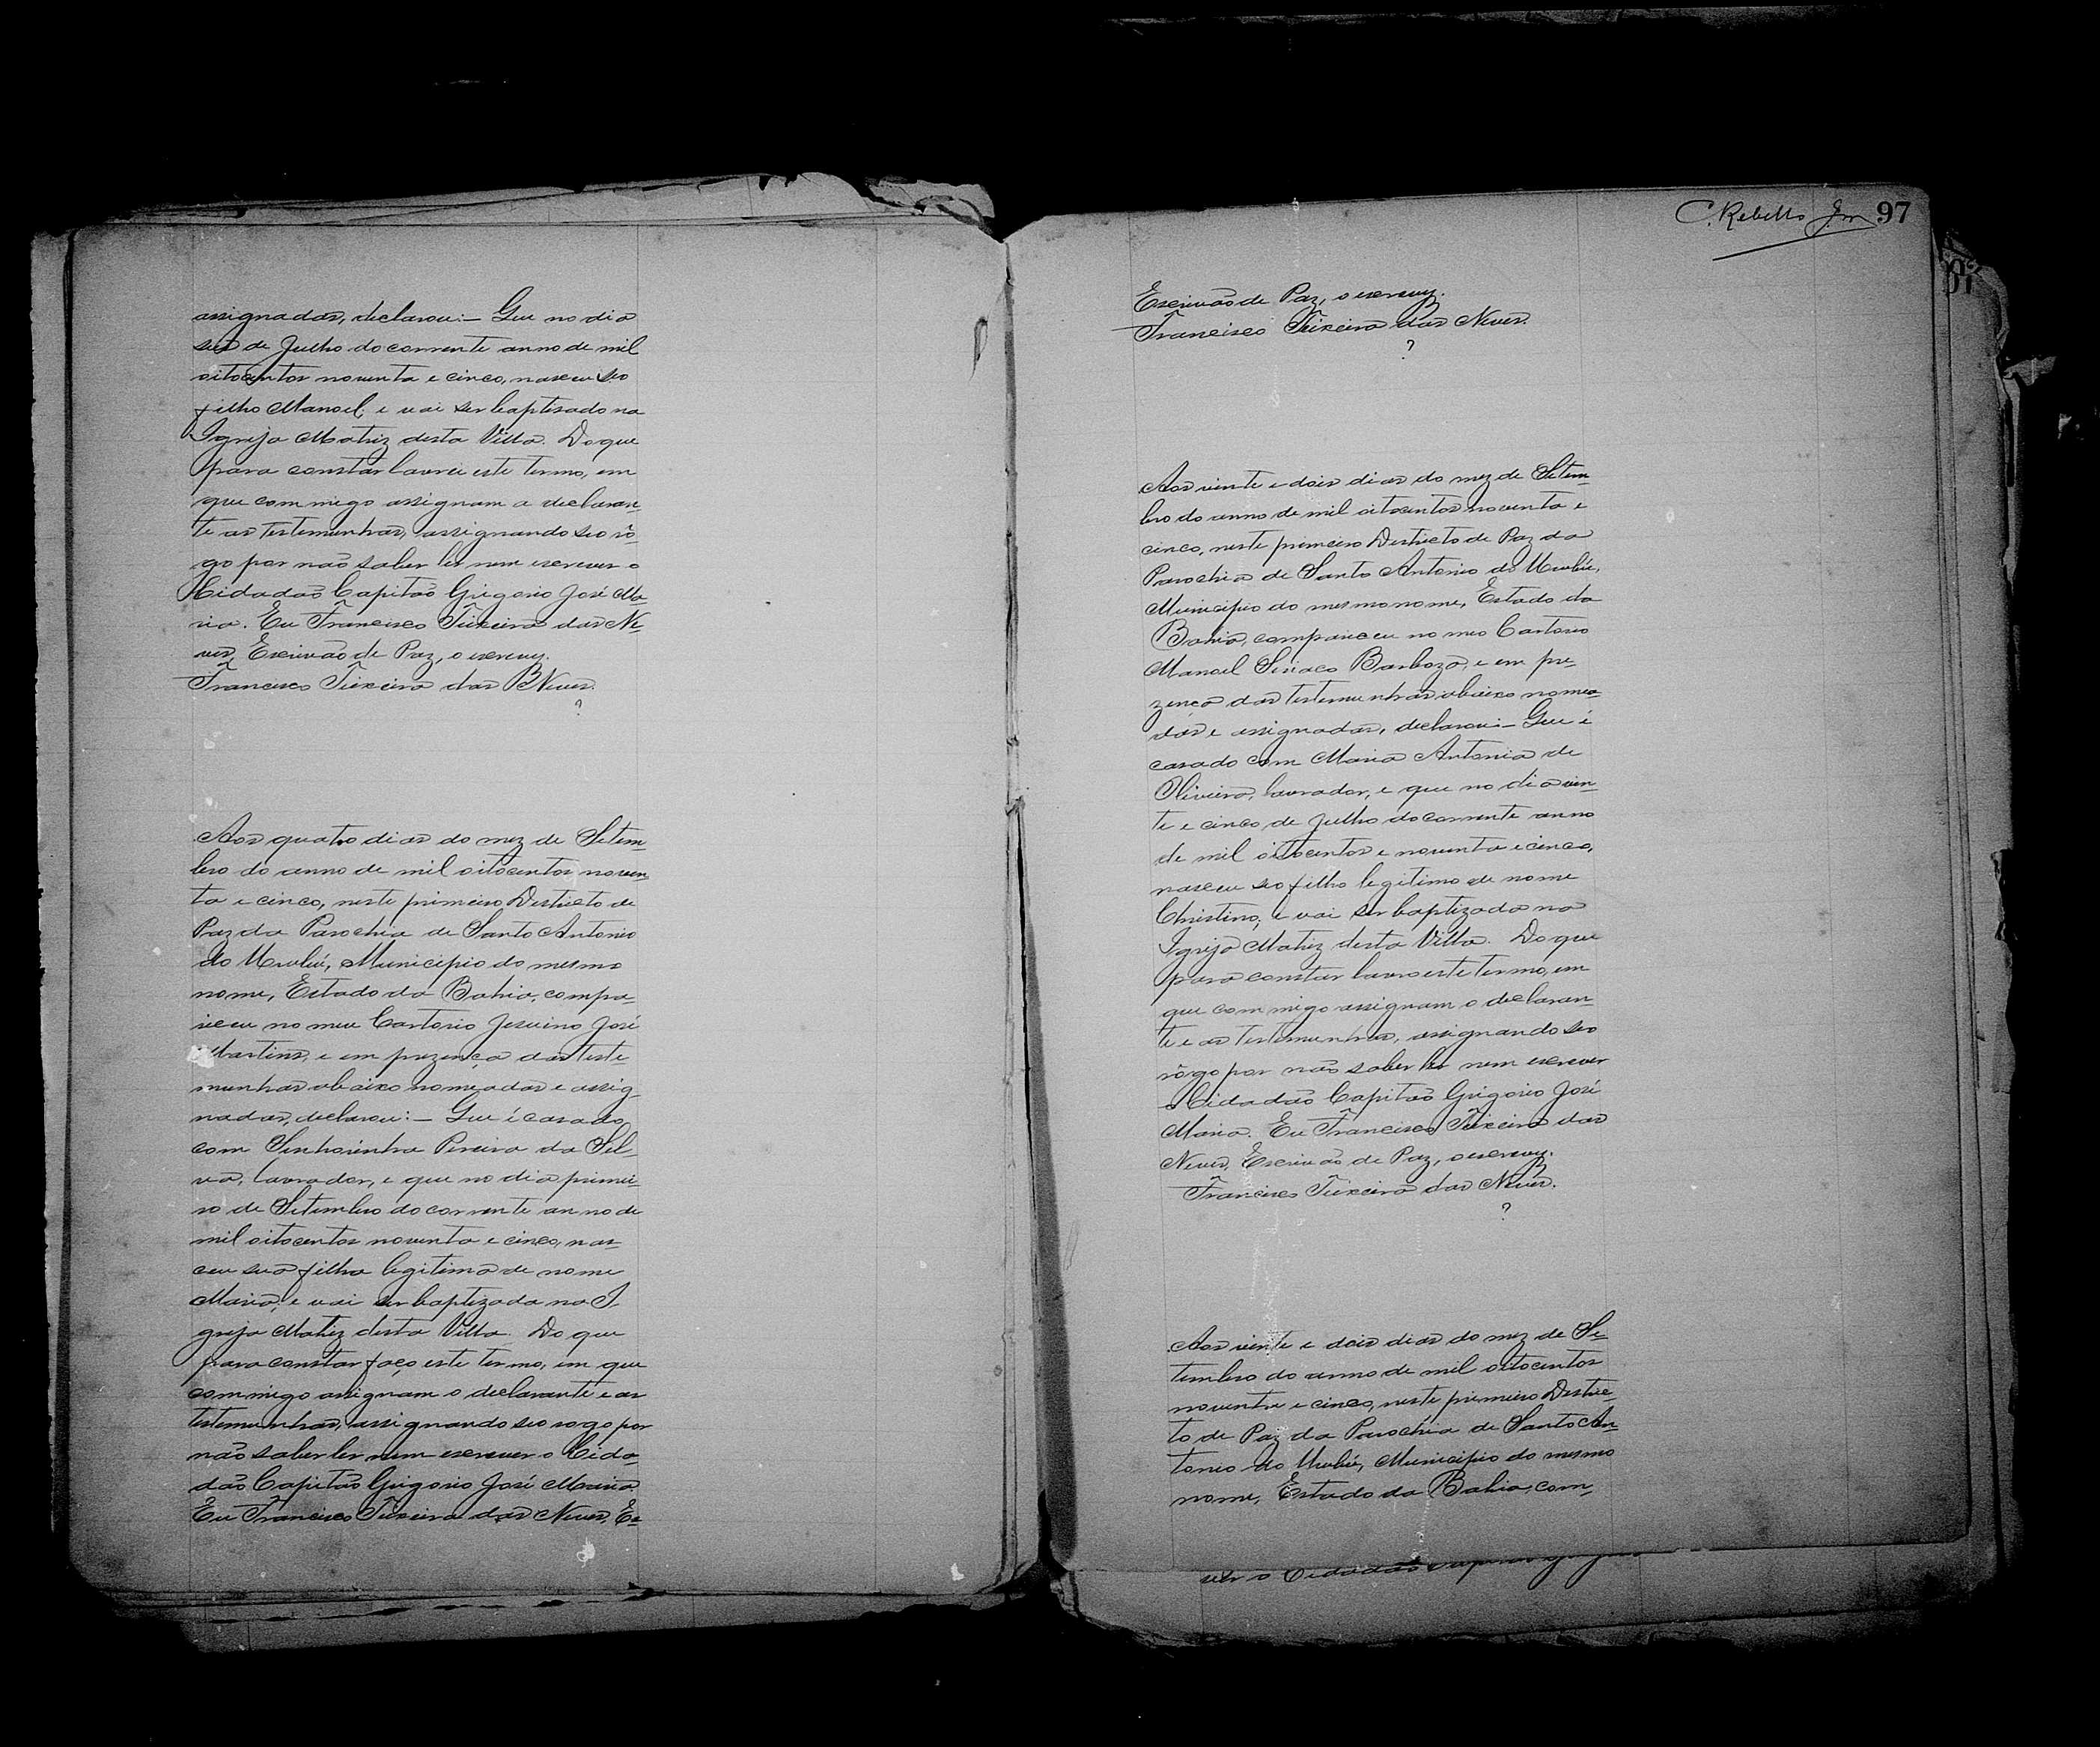 assignadas, declarou:— Que no dia
seis de Julho do corrente anno de mil
oitocentos noventa e cinco, nasceu seo
filho Manoel, e vai ser baptisado na
Igreja Matriz desta Villa. Do que
para constar lavrei este termo, em
que commigo assignam a declaran-
te as testemunhas, assignando seo rô-
go por não saber ler nem escrever o
Cidadão Capitão Grigorio José Ma-
ria. Eu Francisco Teixeira das Ne-
ves, Escrivão de Paz, o escrevy.
Francisco Teixeira das Neves.
Aos quatro dias do mez de Setem-
bro do anno de mil oitocentos noven-
ta e cinco, neste primeiro Destricto de
Paz da Parochia de Santo Antonio
do Urubú, Municipio do mesmo
nome, Estado da Bahia, compa-
receu no meu Cartorio Jesuino José
Martins, e em prezença das teste-
munhas abaixo nomeadas e assig-
nadas, declarou:— Que é casado
com Senhorinha Pereira da Sil-
va, lavrador, e que no dia primei-
ro de Setembro do corrente anno de
mil oitocentos noventa e cinco, nas-
ceu sua filha legitima de nome
Maria, e vai ser baptizada na I-
greja Matriz desta Villa. Do que
para constar faço este termo, em que
commigo assignam o declarante e as
testemunhas, assignando seo rogo por
não saber ler nem escrever o Cida-
dão Capitão Grigorio José Maria.
Eu Francisco Teixeira das Neves, Es-
C. Rebello Jm 97
Escrivão de Paz, o escrevy.
Francisco Teixeira das Neves.
Aos vinte e dois dias do mez de Setem-
bro do anno de mil oitocentos noventa e
cinco, neste primeiro Destricto de Paz da
Parochia de Santo Antonio do Urubú,
Municipio do mesmo nome, Estado da
Bahia, compareceu no meo Cartorio
Manoel Siriaco Barboza, e em pre-
zença das testemunhas abaixo nomea-
das e assignadas, declarou:— Que é
casado com Maria Antonia de
Oliveira, lavrador, e que no dia vin-
te e cinco de Julho do corrente anno
de mil oitocentos e noventa e cinco,
nasceu seo filho legitimo de nome
Christino, e vai ser baptizado na
Igreja Matriz desta Villa. Do que
para constar lavro este termo, em
que commigo assignam o declaran-
te e as testemunhas, assignando seo
rôgo por não saber ler nem escrever
o Cidadão Capitão Grigorio José
Maria. Eu Francisco Teixeira das
Neves, Escrivão de Paz, o escrevy.
Francisco Teixeira das Neves.
Aos vinte e dois dias do mez de Se-
tembro do anno de mil oitocentos
noventa e cinco, neste primeiro Destric-
to de Paz da Parochia de Santo An-
tonio do Urubú, Municipio do mesmo
nome, Estado da Bahia, com-
ver o Cidadão Capitão